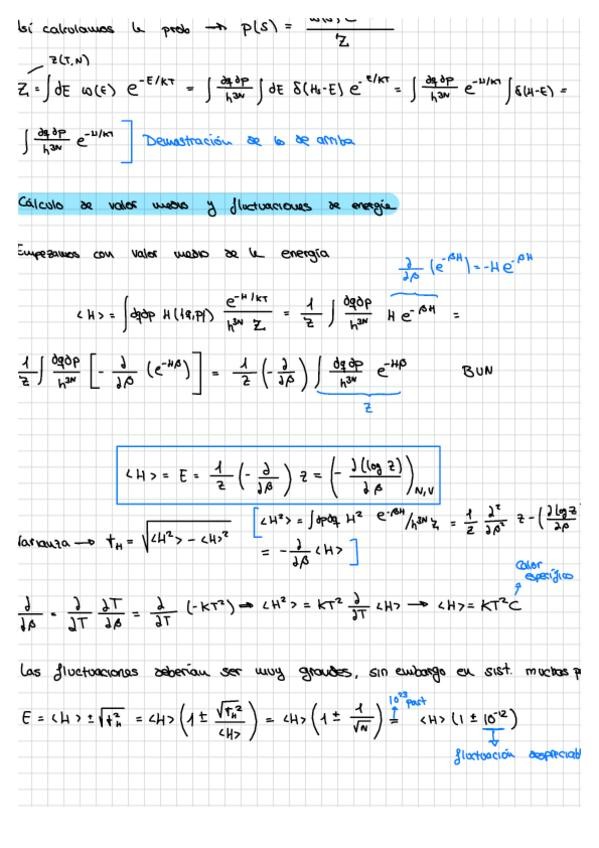 Así calculamos la prob → p(S) = ω(U, C / Z
Z(T,N)
Z = ∫dE ω(E) e^{-E/KT} = ∫ dqdp/h^{3N} ∫dE δ(H₀-E) e^{-E/KT} = ∫ dqdp/h^{3N} e^{-H/KT} ∫δ(H-E) =
∫ dqdp/h^{3N} e^{-H/KT} ] Demostración de lo de arriba
Cálculo de valor medio y fluctuaciones de energía
Empezamos con valor medio de la energía
∂/∂β (e^{-βH}) = -H e^{-βH}
<H> = ∫dqdp H({q,p}) e^{-H/KT} / h^{3N} Z = 1/Z ∫ dqdp/h^{3N} H e^{-βH} =
1/Z ∫ dqdp/h^{3N} [ -∂/∂β (e^{-Hβ}) ] = 1/Z (-∂/∂β) ∫ dqdp/h^{3N} e^{-Hβ} BUN
Z
<H> = E = 1/Z (-∂/∂β) Z = (- ∂(log Z)/∂β)_{N,V}
Varianza → σ_H = √(<H²> - <H>²) [ <H²> = ∫dpdq H² e^{-βH}/h^{3N} Z = 1/Z ∂²/∂β² Z - (∂logZ/∂β
= -∂/∂β <H> ]
Calor específico
∂/∂β = ∂/∂T ∂T/∂β = ∂/∂T (-KT²) → <H²> = KT² ∂/∂T <H> → <H> = KT²C
Las fluctuaciones deberían ser muy grandes, sin embargo en sist. muchas p
10²³ part
E = <H> ± √σ_H² = <H> (1 ± √σ_H² / <H>) = <H> (1 ± 1/√N) = <H> (1 ± 10^{-12})
fluctuación despreciabl